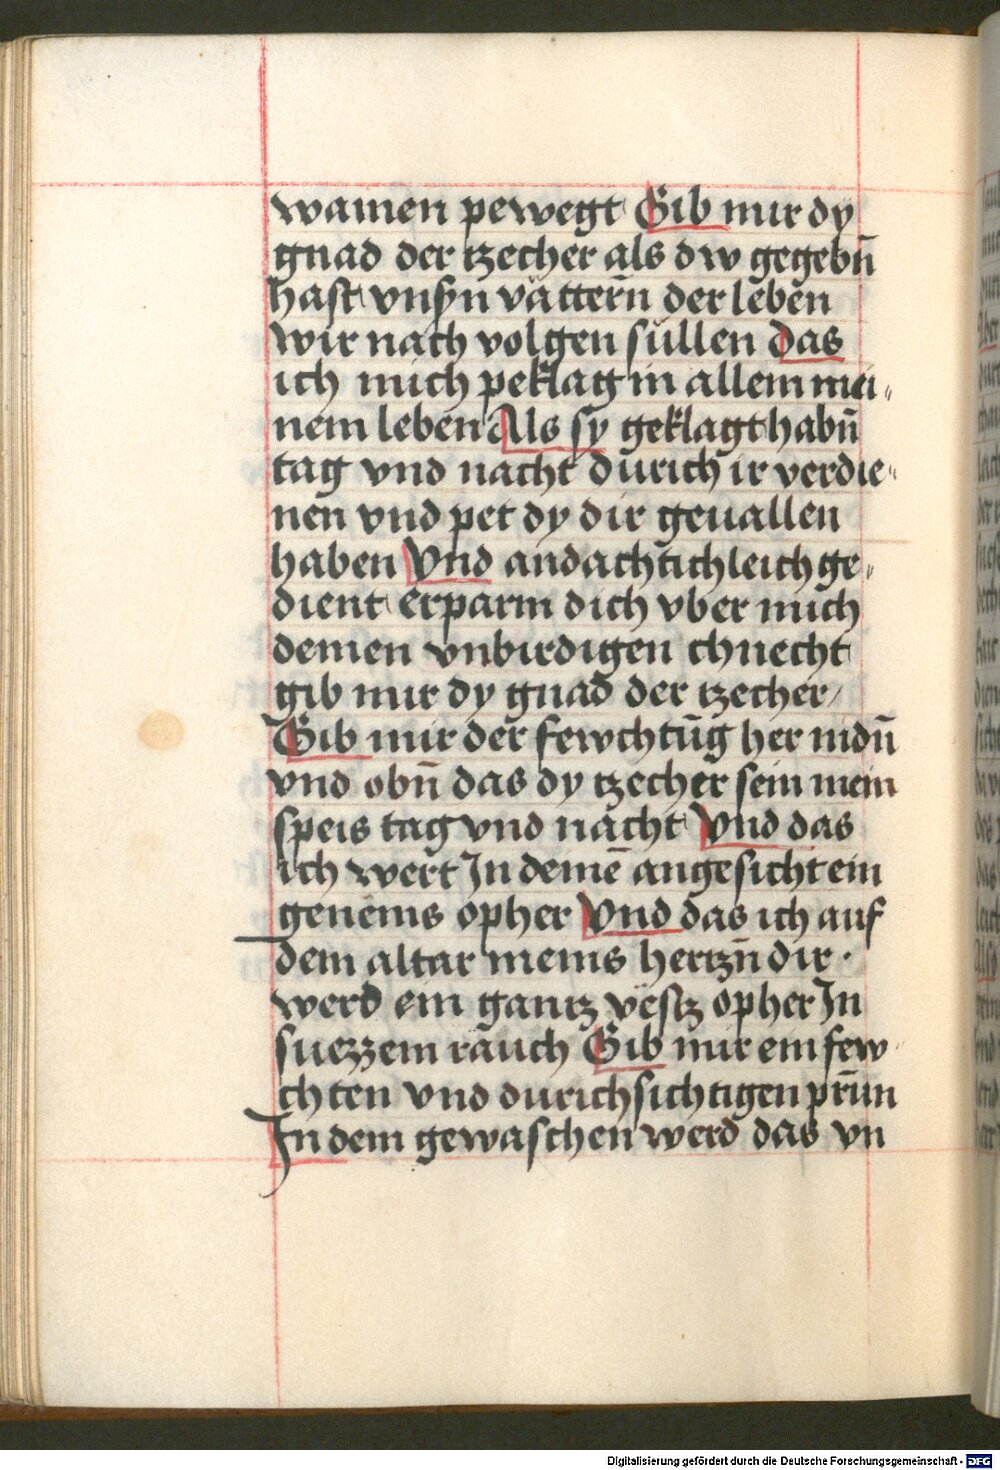 wainen pewegt Gib mir dy
gnad der tzecher als dw gegebn̄
hast vnsn̄ vättern̄ der leben
wir nach volgen süllen Das
ich mich peklag in allem mei〃
nem leben Als sy geklagt habn̄
tag vnd nacht durich ir verdie〃
nen vnd pet dy dir geuallen
haben Vnd andachtichleich ge〃
dient erparm dich vber mich
deinen vnbirdigen chnecht
gib mir dy gnad der tzecher/
Gib mir der fewchtūg her nidn̄
vnd obn̄ das dy tzecher sein mein
speis tag vnd nacht Vnd das
ich wert In deinē angesicht ein
genems opher Vnd das ich auf
dem altar meins hertzn̄ dir ·
werd ein gantz vestz opher In
suezzem rauch Gib mir ein few
chten vnd durichsichtigen prūn
In dem gewaschen werd das vn
Digitalisierung gefördert durch die Deutsche Forschungsgemeinschaft - DFG